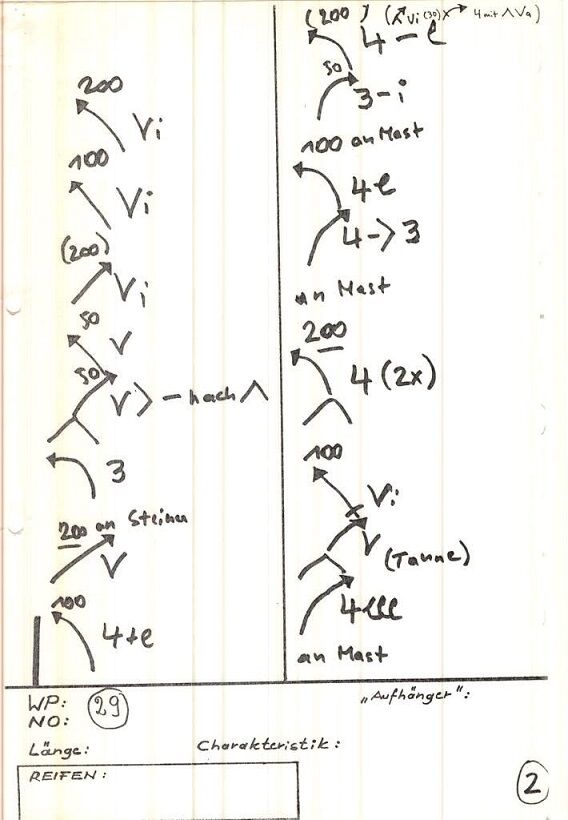 200
Vi
100
Vi
(200)
Vi
50
V
50
V > – nach Λ
3
200 an Steinen
V
100
4+e
(200) (Vi (30) x → 4 mit Λ Va)
4 – e
50
3 – i
100 an Mast
4e
4 –> 3
an Mast
200
4 (2x)
100
Vi
V (Tanne)
4eee
an Mast
WP: 29
NO:
„Aufhänger":
Länge:
Charakteristik:
REIFEN:
2